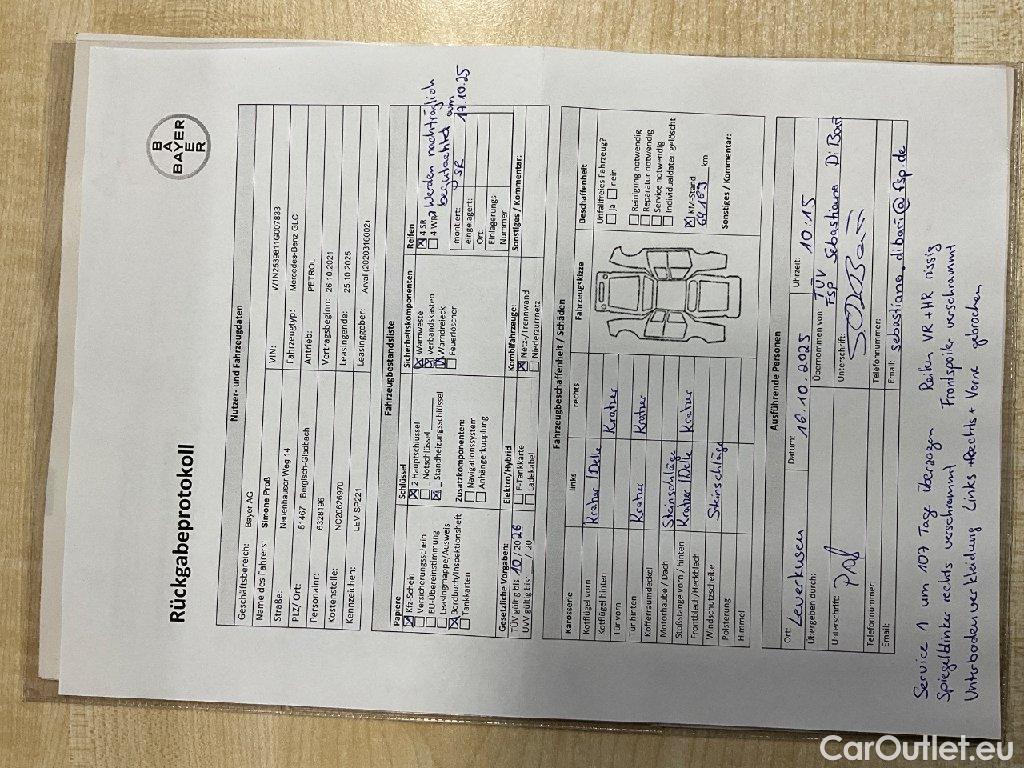 BAYER
BAYER
Rückgabeprotokoll
Nutzer- und Fahrzeugdaten
Geschäftsbereich: Bayer AG VIN:
Name des Fahrers: Simone Pruß Fahrzeugtyp: Mercedes-Benz GLC
Straße: Antrieb: PETROL
PLZ/ Ort: Bergisch-Gladbach Vertragsbeginn: 26.10.2021
Personalnr: Leasingende: 25.10.2025
Kostenstelle: Leasinggeber:
Kennzeichen:
Fahrzeugbestandsliste
Papiere Schlüssel Sicherheitskomponenten Reifen
Kfz-Schein 2 Hauptschlüssel Warnweste 4 SR werden nachträglich
Versicherungsschein Notschlüssel Verbandskasten 4 WR begutachtet am
EU-Übereinstimmung Standheitungsschlüssel Warndreieck montiert: SR 17.10.25
Leasingmappe/Ausweis Zusatzkomponenten: Feuerlöscher eingelagert:
Bordbuch/Inspektionsheft Navigationssystem Ort:
Tankkarten Anhängerkupplung Einlagerung:
Gesetzliche Vorgaben: Elektro/Hybrid Kombifahrzeuge: Nummer
TÜV gültig bis 10/2026 Netz-/Trennwand Sonstiges / Kommentar:
UVV gültig bis __/20__ Ladekabel
Fahrzeugbeschaffenheit / Schäden
Karosserie links rechts Fahrzeugskizze Beschaffenheit
Kotflügel vorn Kratzer / Delle Unfallfreies Fahrzeug?
Kotflügel hinten Kratzer ja nein
Tür vorn
Tür hinten Kratzer Kratzer Reinigung notwendig
Kofferraumdeckel Reparatur notwendig
Motorhaube / Dach Steinschläge Service notwendig
Stoßstange vorn / hinten Kratzer / Delle Kratzer Individualdaten gelöscht
Frontblech / Heckblech KM-Stand
Windschutzscheibe Steinschläge 69169 km
Polsterung Sonstiges / Kommentar:
Himmel
Ausführende Personen
Ort: Leverkusen Datum: 16.10.2025 Uhrzeit: 10:15
Übergeben durch: Übernommen von: TÜV FSP Sebastiano Di Bari
Unterschrift: Unterschrift:
Telefonnummer: Telefonnummer:
Email: Email: sebastiano.dibari@fsp.de
Service 1 um 107 Tage überzogen Reifen VR+HR rissig
Spiegelblinker rechts verschrammt Frontspoiler verschrammt
Unterbodenverkleidung Links + Rechts + Vorne gebrochen
CarOutlet.eu